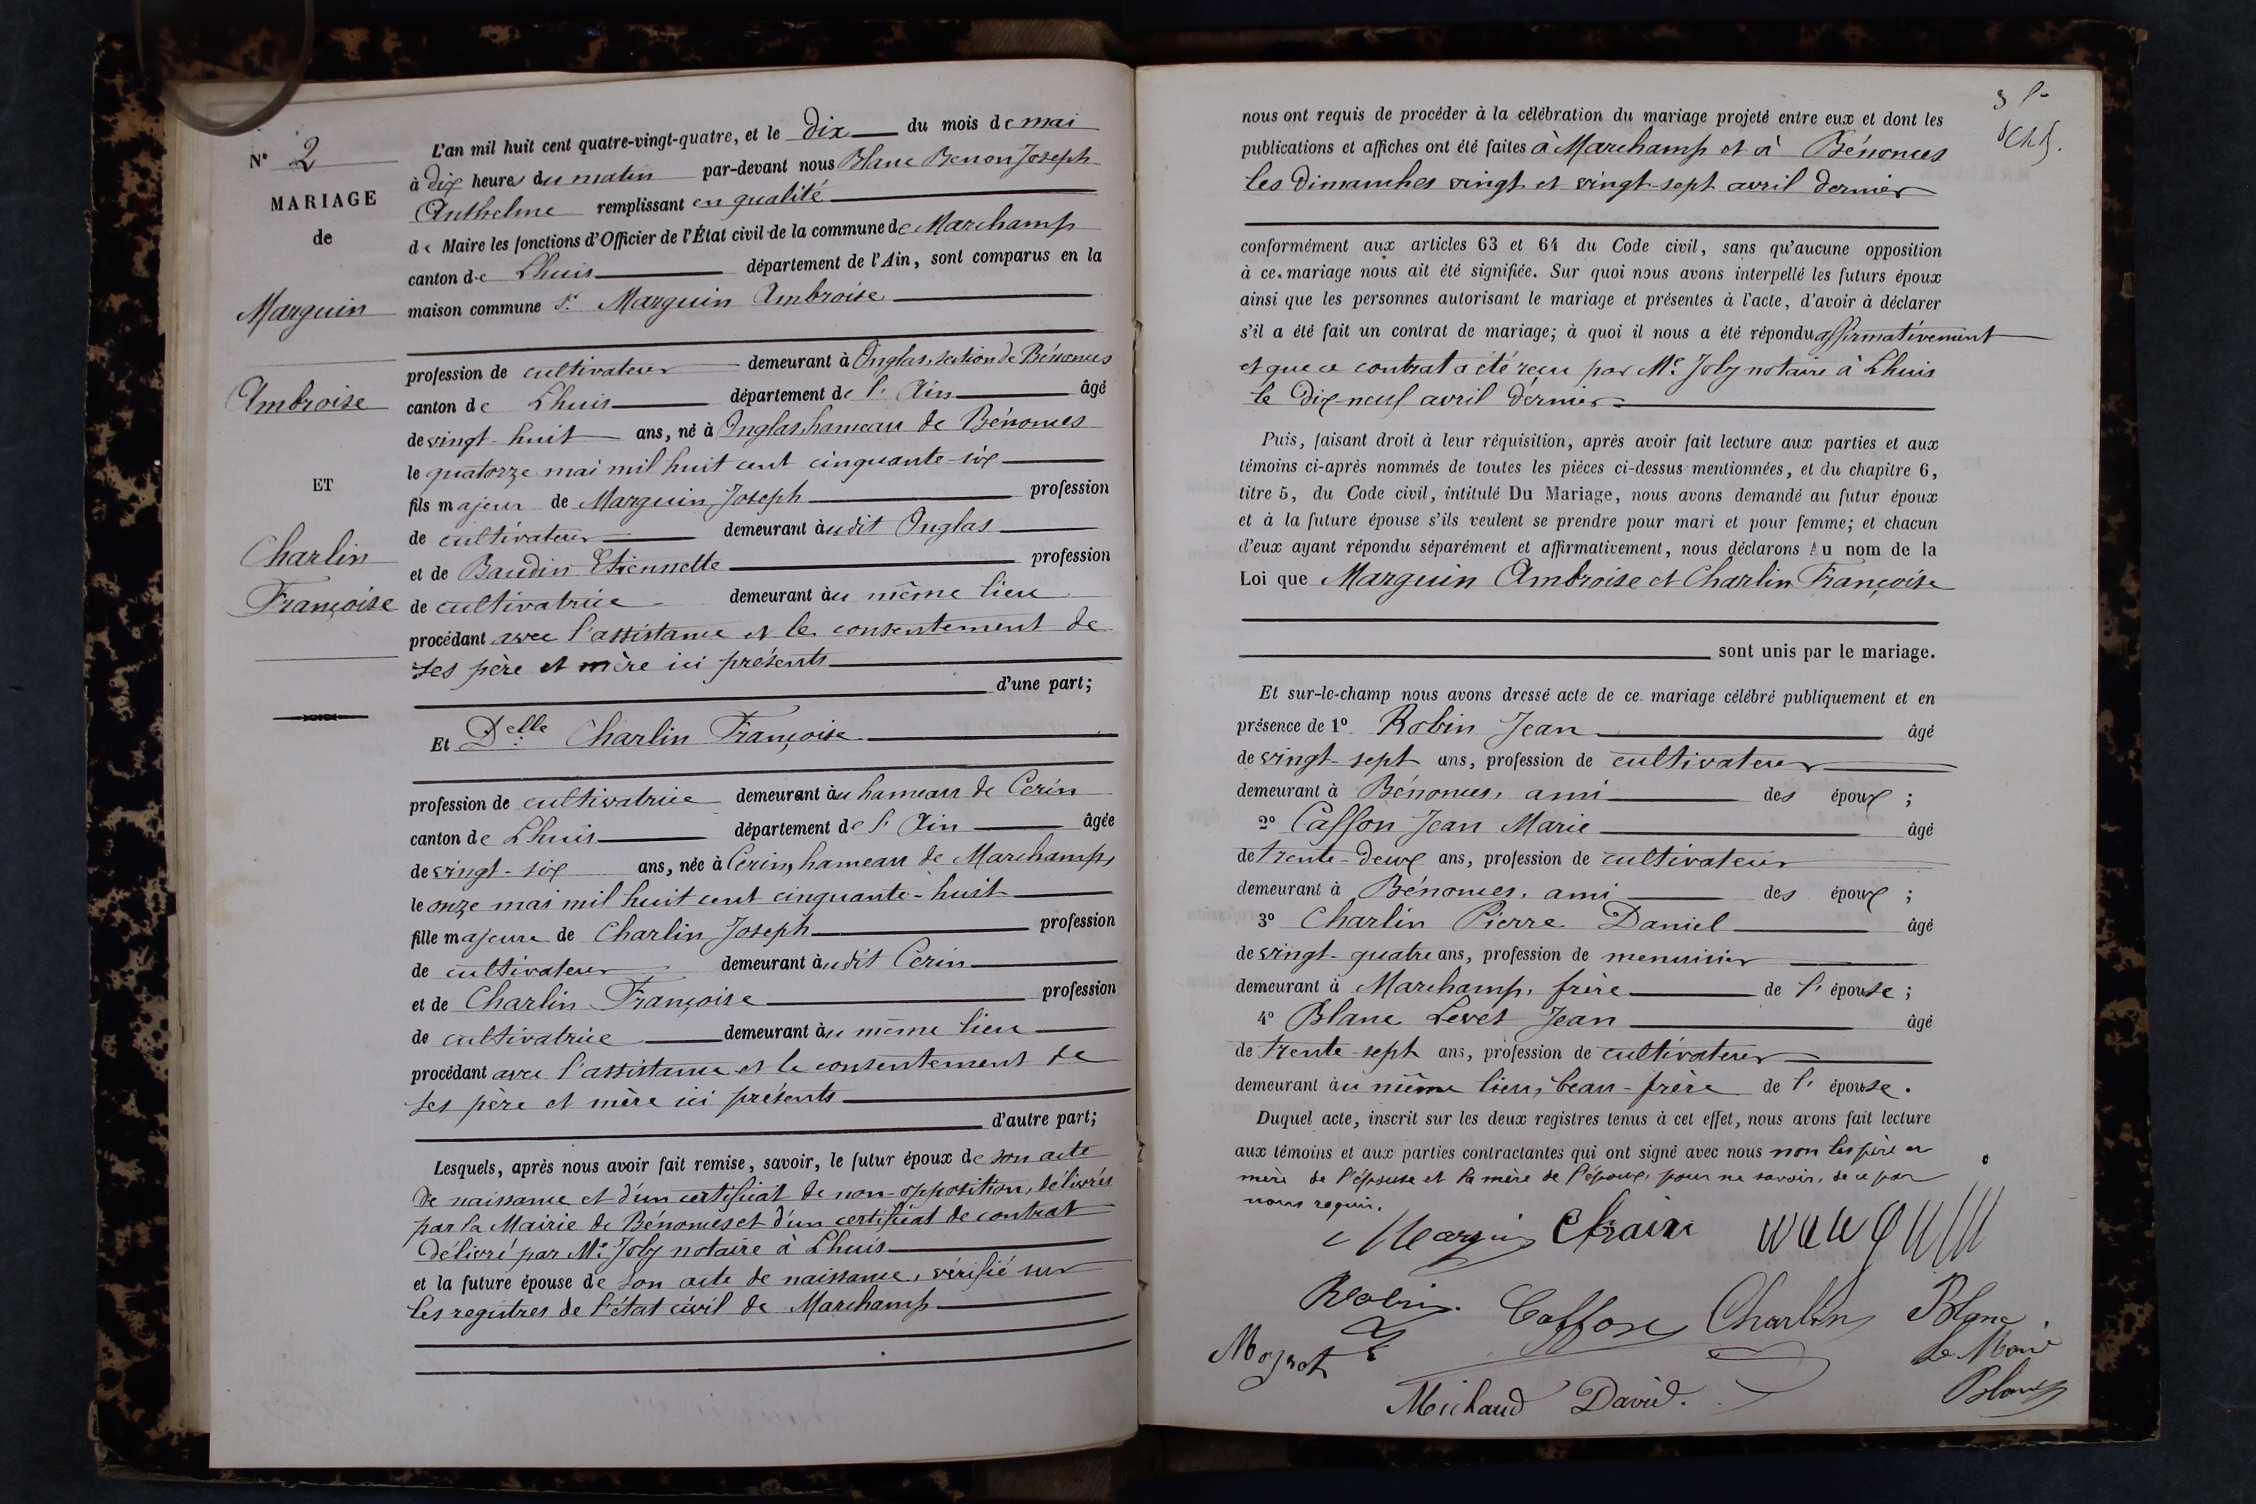 N° 2
MARIAGE
de
Marguin
Ambroise
ET
Charlin
Françoise
L'an mil huit cent quatre-vingt-quatre, et le dix du mois de mai
à dix heures du matin par-devant nous Blanc Benon Joseph
Anthelme remplissant en qualité
de Maire les fonctions d'Officier de l'État civil de la commune de Marchamp
canton de Lhuis département de l'Ain, sont comparus en la
maison commune Sr. Marguin Ambroise
profession de cultivateur demeurant à Onglas, section de Bénonces
canton de Lhuis département de l'Ain âgé
de vingt-huit ans, né à Onglas, hameau de Bénonces
le quatorze mai mil huit cent cinquante-six
fils majeur de Marguin Joseph profession
de cultivateur demeurant àudit Onglas
et de Baudin Etiennette profession
de cultivatrice demeurant àu même lieu
procédant avec l'assistance et le consentement de
ses père et mère ici présents
d'une part;
Et Delle Charlin Françoise
profession de cultivatrice demeurant àu hameau de Cerin
canton de Lhuis département de l'Ain âgée
de vingt-six ans, née à Cerin, hameau de Marchamp,
le onze mai mil huit cent cinquante-huit
fille majeure de Charlin Joseph profession
de cultivateur demeurant àudit Cerin
et de Charlin Françoise profession
de cultivatrice demeurant àu même lieu
procédant avec l'assistance et le consentement de
ses père et mère ici présents
d'autre part;
Lesquels, après nous avoir fait remise, savoir, le futur époux de son acte
de naissance et d'un certificat de non-opposition, délivrés
par la Mairie de Bénonces et d'un certificat de contrat
délivré par Me. Joly notaire à Lhuis
et la future épouse de son acte de naissance, vérifié sur
les registres de l'état civil de Marchamp
nous ont requis de procéder à la célébration du mariage projeté entre eux et dont les
publications et affiches ont été faites à Marchamp et à Bénonces
les dimanches vingt et vingt-sept avril dernier
conformément aux articles 63 et 64 du Code civil, sans qu'aucune opposition
à ce mariage nous ait été signifiée. Sur quoi nous avons interpellé les futurs époux
ainsi que les personnes autorisant le mariage et présentes à l'acte, d'avoir à déclarer
s'il a été fait un contrat de mariage; à quoi il nous a été répondu affirmativement
et que ce contrat a été reçu par Me. Joly notaire à Lhuis
le dix-neuf avril dernier
Puis, faisant droit à leur réquisition, après avoir fait lecture aux parties et aux
témoins ci-après nommés de toutes les pièces ci-dessus mentionnées, et du chapitre 6,
titre 5, du Code civil, intitulé Du Mariage, nous avons demandé au futur époux
et à la future épouse s'ils veulent se prendre pour mari et pour femme; et chacun
d'eux ayant répondu séparément et affirmativement, nous déclarons Au nom de la
Loi que Marguin Ambroise et Charlin Françoise
sont unis par le mariage.
Et sur-le-champ nous avons dressé acte de ce mariage célébré publiquement et en
présence de 1° Robin Jean âgé
de vingt-sept ans, profession de cultivateur
demeurant à Bénonces, ami des époux ;
2° Caffon Jean Marie âgé
de trente-deux ans, profession de cultivateur
demeurant à Bénonces, ami des époux ;
3° Charlin Pierre Daniel âgé
de vingt-quatre ans, profession de menuisier
demeurant à Marchamp, frère de l'épouse ;
4° Blanc Levet Jean âgé
de trente-sept ans, profession de cultivateur
demeurant àu même lieu, beau-frère de l'épouse.
Duquel acte, inscrit sur les deux registres tenus à cet effet, nous avons fait lecture
aux témoins et aux parties contractantes qui ont signé avec nous non les père et
mère de l'épouse et la mère de l'époux, pour ne savoir, de ce par
nous requis.
Marguin
Robin Caffon Charlin Blanc
Le Maire
Michaud David. Blanc